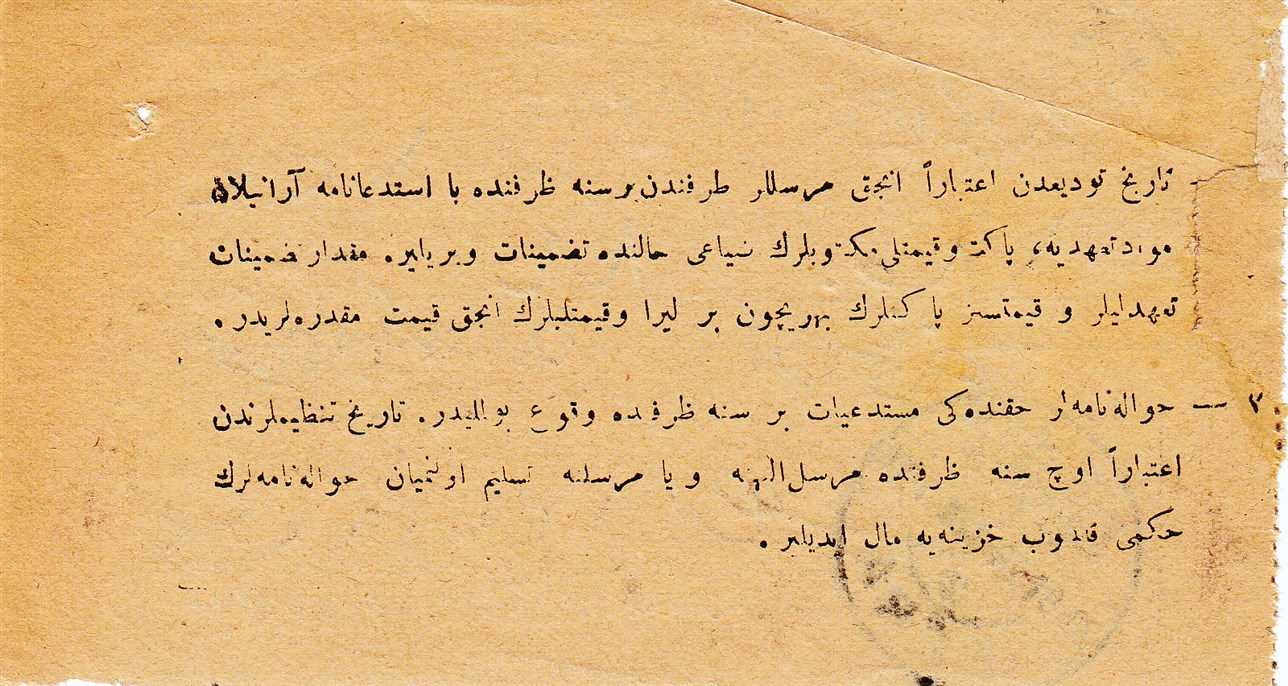 تاریخ تودیعدن اعتباراً انجق مرسللر طرفندن بر سنه ظرفنده با استدعانامه آرانیلان
مواد تعهدیه، پاکت وقیمتلی مکتوبلرك ضیاعی حالنده تضمینات ویریلیر. مقدار تضمینات
تعهدلیلر و قیمتسز پاکتلرك بهریچون بر لیرا وقیمتلیلرك انجق قیمت مقدره‌لریدر.
۲ — حواله‌نامه‌لر حقنده‌کی مستدعیات بر سنه ظرفنده وقوع بولملیدر. تاریخ تنظیملرندن
اعتباراً اوچ سنه ظرفنده مرسل الیهنه ویا مرسلنه تسلیم اولنمیان حواله‌نامه‌لرك
حکمی قالمیوب خزینه‌یه مال ایدیلیر.